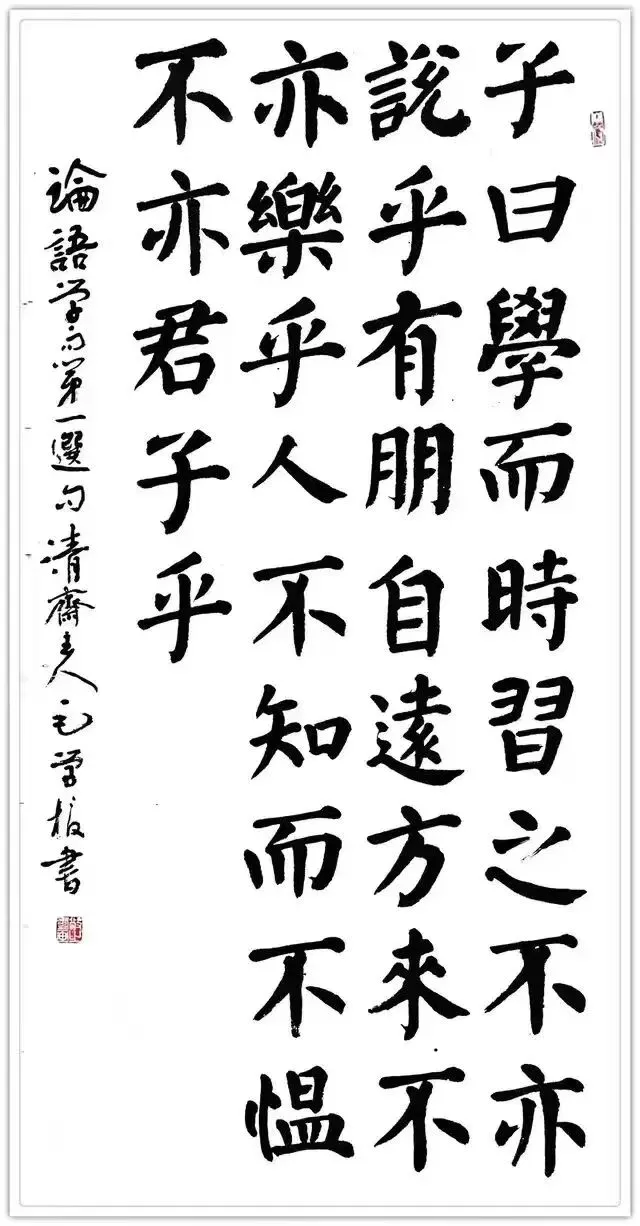 子曰學而時習之不亦
説乎有朋自遠方來不
亦樂乎人不知而不愠
不亦君子乎
論語学而第一選句清齋主人毛学書